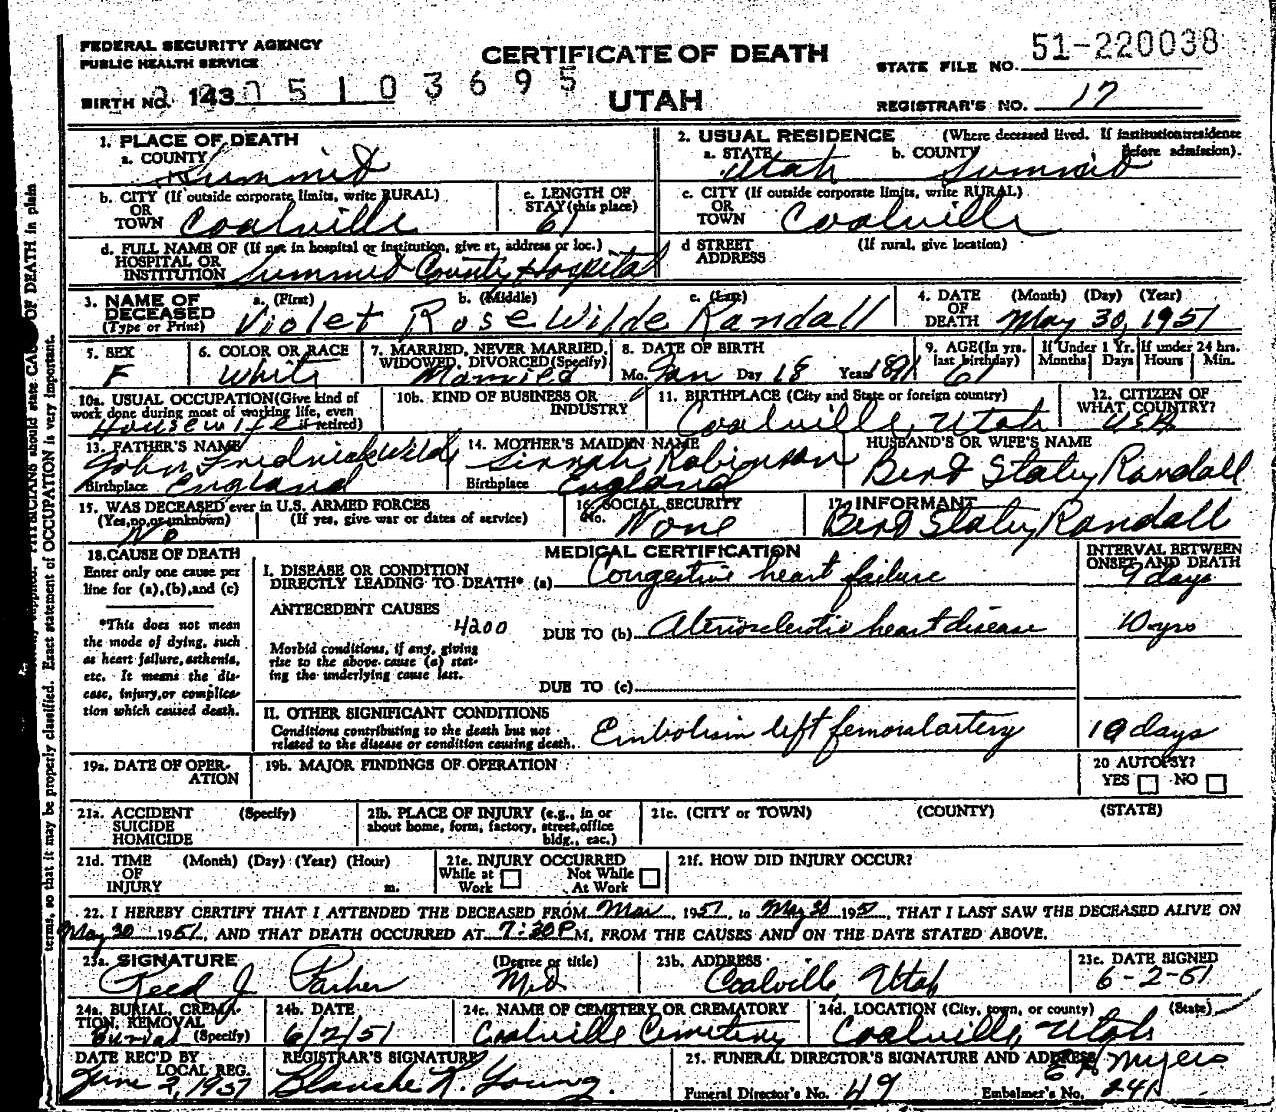 FEDERAL SECURITY AGENCY
PUBLIC HEALTH SERVICE
CERTIFICATE OF DEATH
UTAH
STATE FILE NO. 51-220038
BIRTH NO. 143 2 2 0 5 1 0 3 6 9 5
REGISTRAR'S NO. 17
1. PLACE OF DEATH
a. COUNTY Summit
2. USUAL RESIDENCE (Where deceased lived. If institution: residence before admission).
a. STATE Utah b. COUNTY Summit
b. CITY (If outside corporate limits, write RURAL) OR TOWN Coalville
c. LENGTH OF STAY (this place) 61
c. CITY (If outside corporate limits, write RURAL) OR TOWN Coalville
d. FULL NAME OF (If not in hospital or institution, give st. address or loc.) HOSPITAL OR INSTITUTION Summit County Hospital
d STREET ADDRESS (If rural, give location)
3. NAME OF DECEASED (Type or Print) a. (First) b. (Middle) c. (Last)
Violet Rose Wilde Randall
4. DATE OF DEATH (Month) (Day) (Year) May 30, 1951
5. SEX F
6. COLOR OR RACE White
7. MARRIED, NEVER MARRIED, WIDOWED, DIVORCED (Specify) Married
8. DATE OF BIRTH Mo. Jan Day 18 Year
9. AGE (In yrs. last birthday) 61
If Under 1 Yr. Months Days
If under 24 hrs. Hours Min.
10a. USUAL OCCUPATION (Give kind of work done during most of working life, even if retired) Housewife
10b. KIND OF BUSINESS OR INDUSTRY
11. BIRTHPLACE (City and State or foreign country) Coalville, Utah
12. CITIZEN OF WHAT COUNTRY? USA
13. FATHER'S NAME John Fredrick Wilde
Birthplace England
14. MOTHER'S MAIDEN NAME Robinson
Birthplace England
HUSBAND'S OR WIFE'S NAME Bert Staley Randall
15. WAS DECEASED ever in U.S. ARMED FORCES (Yes, no, or unknown) No (If yes, give war or dates of service)
16. SOCIAL SECURITY No. None
17. INFORMANT Bert Staley Randall
18. CAUSE OF DEATH
Enter only one cause per line for (a), (b), and (c)
*This does not mean the mode of dying, such as heart failure, asthenia, etc. It means the disease, injury, or complication which caused death.
MEDICAL CERTIFICATION
INTERVAL BETWEEN ONSET AND DEATH
I. DISEASE OR CONDITION DIRECTLY LEADING TO DEATH* (a) Congestive heart failure 9 days
ANTECEDENT CAUSES
4200
DUE TO (b) Aterosclerotic heart disease 10 yrs
Morbid conditions, if any, giving rise to the above cause (a) stating the underlying cause last.
DUE TO (c)
II. OTHER SIGNIFICANT CONDITIONS
Conditions contributing to the death but not related to the disease or condition causing death. Embolism left femoral artery 10 days
19a. DATE OF OPERATION
19b. MAJOR FINDINGS OF OPERATION
20 AUTOPSY? YES NO
21a. ACCIDENT SUICIDE HOMICIDE (Specify)
21b. PLACE OF INJURY (e.g., in or about home, form, factory, street, office bldg., eac.)
21c. (CITY or TOWN) (COUNTY) (STATE)
21d. TIME OF INJURY (Month) (Day) (Year) (Hour) m.
21e. INJURY OCCURRED While at Work Not While At Work
21f. HOW DID INJURY OCCUR?
22. I HEREBY CERTIFY THAT I ATTENDED THE DECEASED FROM Mar, 1951, to May 30 1951, THAT I LAST SAW THE DECEASED ALIVE ON
May 30 1951, AND THAT DEATH OCCURRED AT 7:30 P M, FROM THE CAUSES AND ON THE DATE STATED ABOVE.
23a. SIGNATURE (Degree or title) Reed J Parker M.D.
23b. ADDRESS Coalville, Utah
23c. DATE SIGNED 6-2-51
24a. BURIAL, CREMATION, REMOVAL (Specify) Burial
24b. DATE 6/2/51
24c. NAME OF CEMETERY OR CREMATORY Coalville Cemetery
24d. LOCATION (City, town, or county) (State) Coalville, Utah
DATE REC'D BY LOCAL REG. June 2, 1951
REGISTRAR'S SIGNATURE Blanche R. Young.
25. FUNERAL DIRECTOR'S SIGNATURE AND ADDRESS Myers
Funeral Director's No. 49 Embalmer's No. 241
OF DEATH in plain
PHYSICIANS should state
terms, so that it may be properly classified. Exact statement of OCCUPATION is very important.